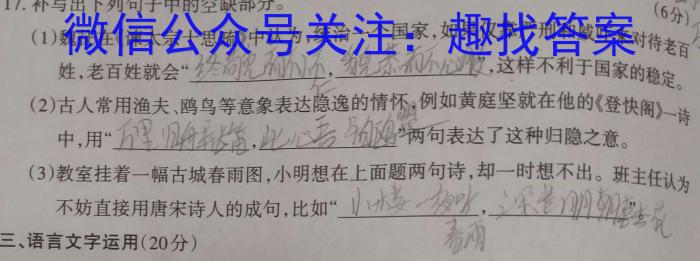 17. 补写出下列句子中的空缺部分。
(6分)
微信公众号关注：趣找答案
(1)魏征在《谏太宗十思疏》中认为，统治一个国家，如果 对待老百
姓，老百姓就会“终苟免而不怀仁，貌恭而不心服”，这样不利于国家的稳定。
(2)古人常用渔夫、鸥鸟等意象表达隐逸的情怀，例如黄庭坚就在他的《登快阁》一诗
中，用“万里归船弄长笛，此心吾与白鸥盟”两句表达了这种归隐之意。
(3)教室挂着一幅古城春雨图，小明想在上面题两句诗，却一时想不出。班主任认为
不妨直接用唐宋诗人的成句，比如“小楼一夜听春雨，深巷明朝卖杏花”。
三、语言文字运用(20分)